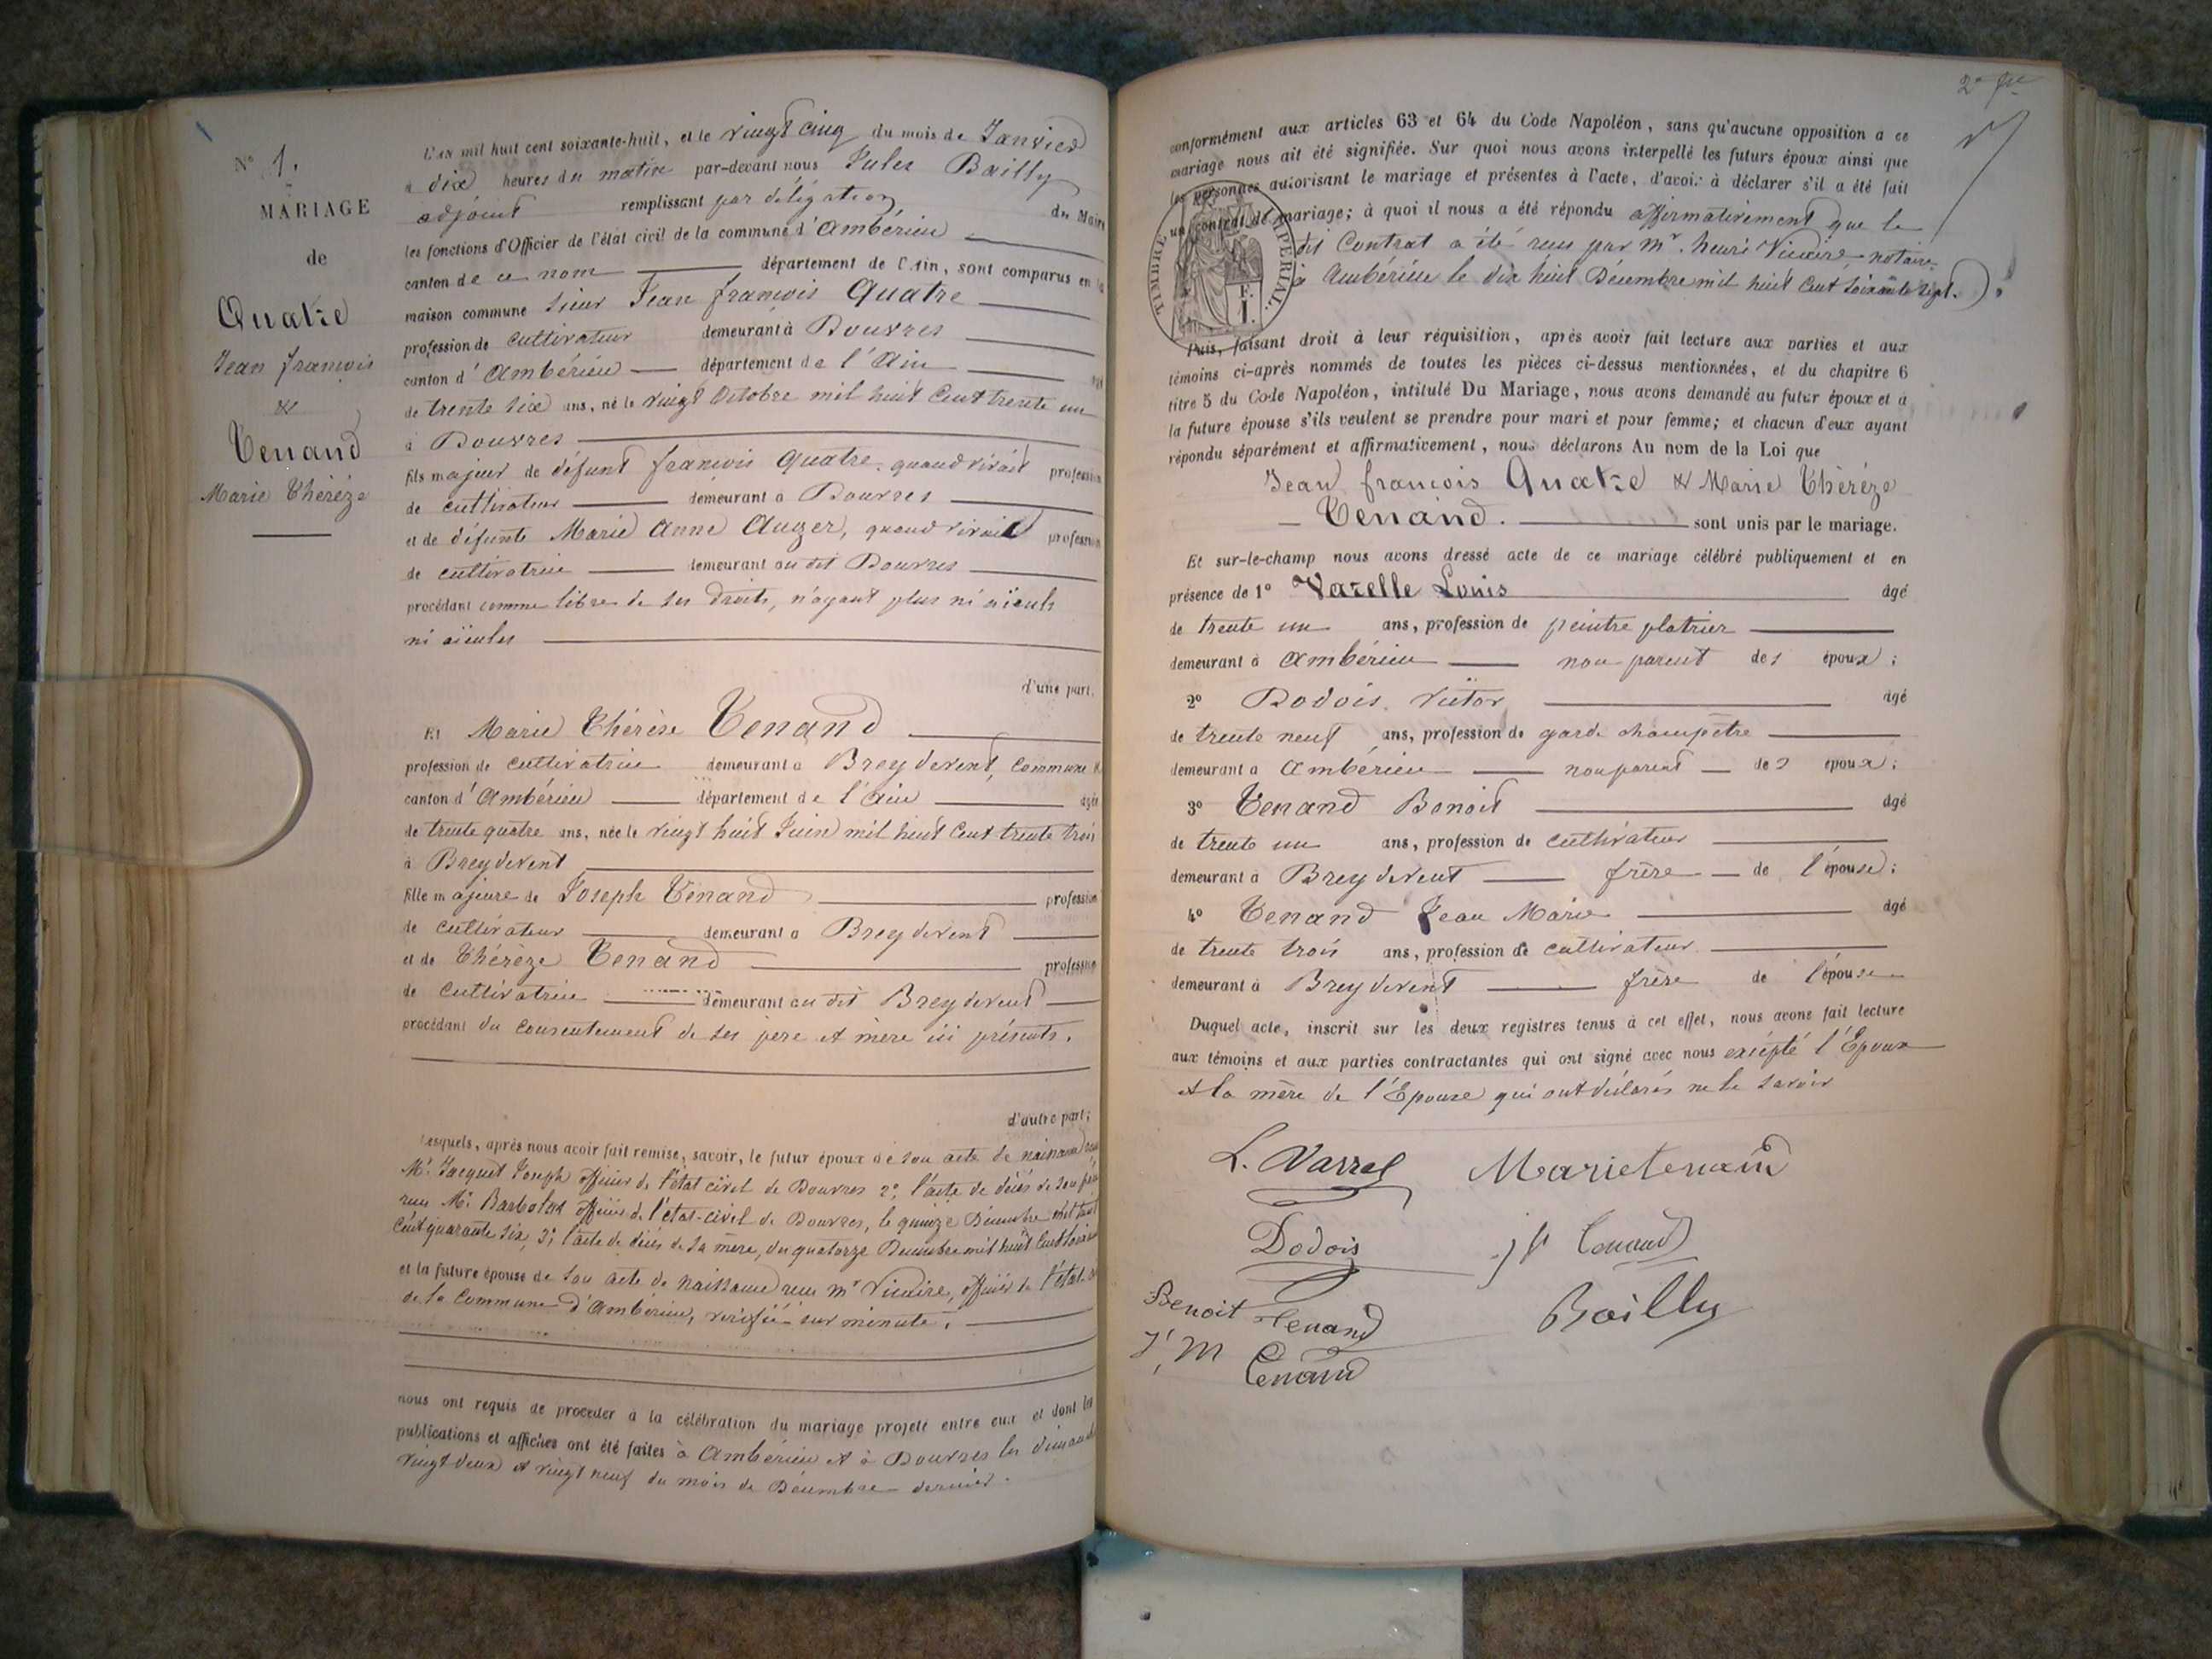 N° 1.
MARIAGE
de
Quatre
Jean françois
&
Tenand
Marie Thérèze
L'an mil huit cent soixante-huit, et le vingt cinq du mois de Janvier
à dix heures du matin par-devant nous Jules Bailly
adjoint remplissant par délégation du Maire
les fonctions d'Officier de l'état civil de la commune d'Ambérieu
canton de ce nom département de l'Ain, sont comparus en la
maison commune sieur Jean françois Quatre
profession de cultivateur demeurant à Douvres
canton d'Ambérieu département de l'Ain
de trente six ans, né le vingt Octobre mil huit Cent trente un
à Douvres
fils majeur de défunt françois Quatre, quand vivait profession
de cultivateur demeurant à Douvres
et de défunte Marie Anne Auger, quand vivait profession
de cultivatrice demeurant au dit Douvres
procédant comme libre de ses droits, n'ayant plus ni aïeuls
ni aïeules
d'une part.
Et Marie Thérèse Tenand
profession de cultivatrice demeurant à Breydevent, Commune
canton d'Ambérieu département de l'Ain agée
de trente quatre ans, née le vingt huit Juin mil huit Cent trente trois
à Breydevent
fille majeure de Joseph Tenand profession
de cultivateur demeurant à Breydevent
et de Thérèze Tenand profession
de cultivatrice demeurant au dit Breydevent
procédant du consentement de ses père et mère ici présents.
d'autre part;
Lesquels, après nous avoir fait remise, savoir, le futur époux de son acte de naissance
Mr. Jacquet Joseph officier de l'état civil de Douvres 2°, l'acte de décès de son père
reçu Mr. officier de l'état-civil de Douvres, le quinze Décembre mil huit
Cent quarante six, 3°, l'acte de décès de sa mère, du quatorze Décembre mil huit Cent
et la future épouse de son acte de naissance reçu mr Vicaire, officier de l'état
de la Commune d'Ambérieu, vérifié sur minute.
nous ont requis de procéder à la célébration du mariage projeté entre eux et dont les
publications et affiches ont été faites à Ambérieu et à Douvres les dimanches
vingt-deux et vingt neuf du mois de Décembre dernier.
conformément aux articles 63 et 64 du Code Napoléon, sans qu'aucune opposition a ce
mariage nous ait été signifiée. Sur quoi nous avons interpellé les futurs époux ainsi que
les personnes autorisant le mariage et présentes à l'acte, d'avoir à déclarer s'il a été fait
un contrat de mariage; à quoi il nous a été répondu affirmativement que le
dit Contrat a été reçu par mr. henri Vicaire notaire
à Ambérieu le dix huit Décembre mil huit Cent soixante sept.
TIMBRE IMPERIAL.
Puis, faisant droit à leur réquisition, après avoir fait lecture aux parties et aux
témoins ci-après nommés de toutes les pièces ci-dessus mentionnées, et du chapitre 6
titre 5 du Code Napoléon, intitulé Du Mariage, nous avons demandé au futur époux et a
la future épouse s'ils veulent se prendre pour mari et pour femme; et chacun d'eux ayant
répondu séparément et affirmativement, nous déclarons Au nom de la Loi que
Jean françois Quatre & Marie Thérèze
Tenand. sont unis par le mariage.
Et sur-le-champ nous avons dressé acte de ce mariage célébré publiquement et en
présence de 1° Varelle Louis âgé
de trente un ans, profession de peintre platrier
demeurant à Ambérieu non parent des époux;
2° Dodois Victor âgé
de trente neuf ans, profession de garde champêtre
demeurant à Ambérieu non parent des époux;
3° Tenand Benoit âgé
de trente un ans, profession de cultivateur
demeurant à Breydevent frère de l'épouse;
4° Tenand Jean Marie âgé
de trente trois ans, profession de cultivateur
demeurant à Breydevent frère de l'épouse
Duquel acte, inscrit sur les deux registres tenus à cet effet, nous avons fait lecture
aux témoins et aux parties contractantes qui ont signé avec nous excépté l'Epoux
et la mère de l'Epouse qui ont déclarés ne le savoir
L. Varrel Marie tenand
Dodois Tenand
Benoit Tenand Bailly
J, M Tenand